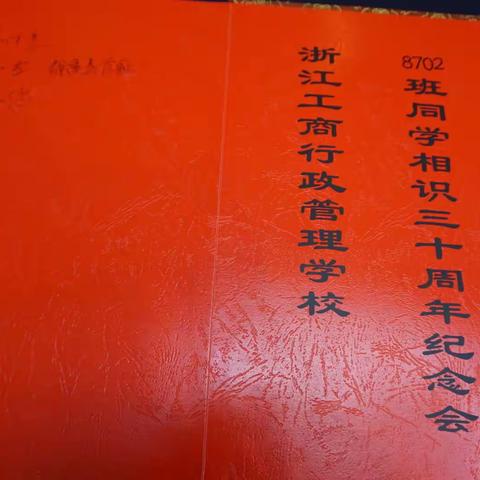 8702班同学相识三十周年纪念会
浙江工商行政管理学校